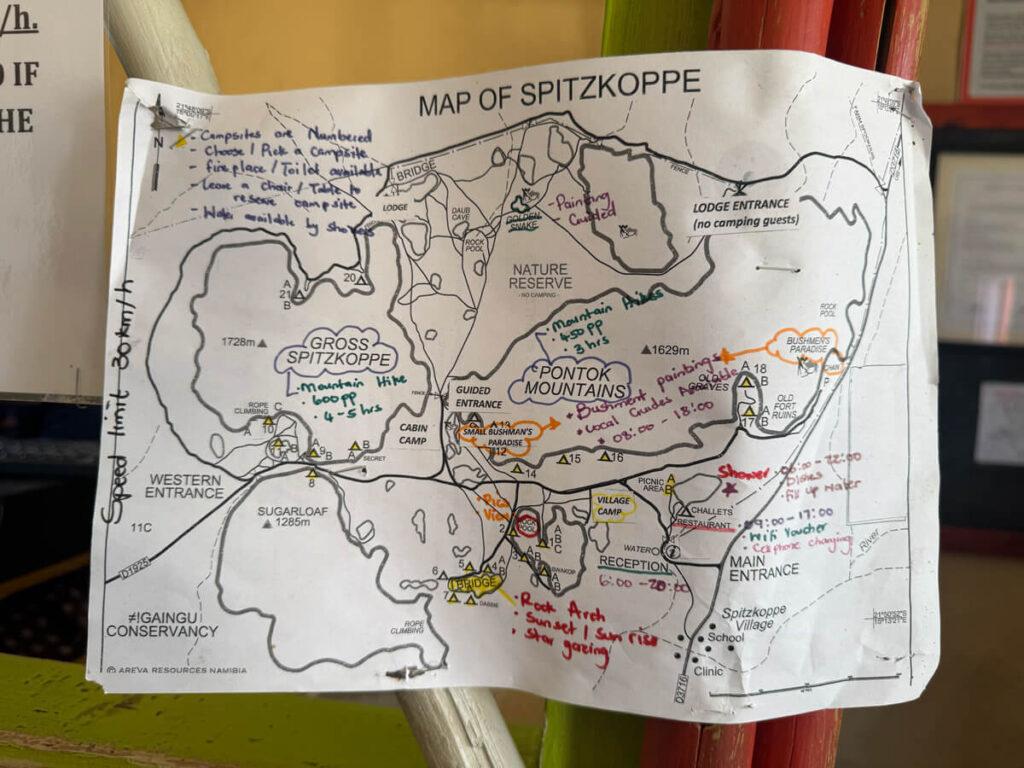 /h.
IF
HE
MAP OF SPITZKOPPE
N
- Campsites are Numbered
- Choose / Pick a Campsite
- fireplace / Toilet available
- Leave a Chair / Table to
reserve campsite
- Water available by showers
BRIDGE
LODGE
DAUB
CAVE
ROCK
POOL
GOLDEN
SNAKE
- Painting
Guided
FENCE
LODGE ENTRANCE
(no camping guests)
NATURE
RESERVE
- NO CAMPING -
A
21
B
20
1728m
GROSS
SPITZKOPPE
• Mountain Hike
• 600pp
• 4-5 hrs
• Mountain Hikes
• 450pp
• 3 hrs
PONTOK
MOUNTAINS
1629m
ROCK
POOL
BUSHMEN'S
PARADISE
CHAIN
OLD GRAVES
A 18
B
17
A
B
OLD
FORT
RUINS
• Bushment paintings
• Local Guides Available
• 08:00 - 18:00
Speed limit 30km/h
FENCE
GUIDED
ENTRANCE
CABIN
CAMP
SMALL BUSHMAN'S
PARADISE
13
12
14
15
16
ROPE
CLIMBING
C
A
10
B
A
9B
B
SECRET
8
WESTERN
ENTRANCE
11C
D1925
SUGARLOAF
1285m
PICNIC
AREA
A
B
VILLAGE
CAMP
CHALLETS
RESTAURANT
Shower
• 06:00 - 22:00
• Dishes
• fill up water
• 09:00 - 17:00
• Wifi Voucher
• Cellphone charging
Pool
View
2
1
A
B
C
3
A
B
4
A
B
5
6
7
BRIDGE
DASSIE
WATER
RECEPTION
6:00 - 20:00
MAIN
ENTRANCE
River
• Rock Arch
• Sunset / Sun rise
• Star gazing
ROPE
CLIMBING
≠!GAINGU
CONSERVANCY
Spitzkoppe
Village
School
Clinic
D3716
© AREVA RESOURCES NAMIBIA